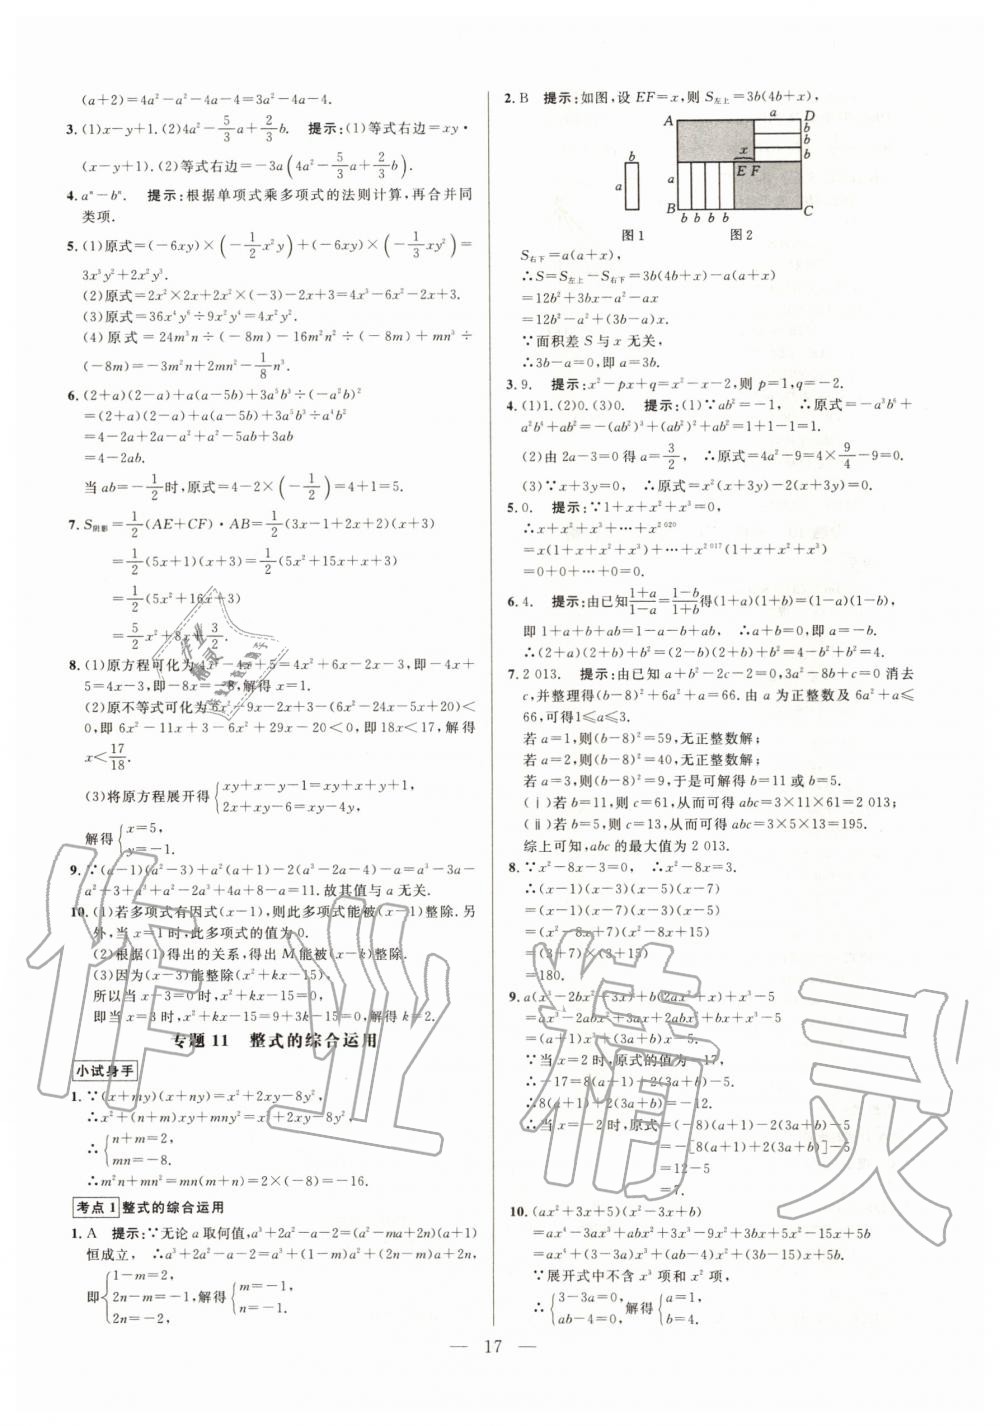 (a+2)=4a²-a²-4a-4=3a²-4a-4.
3.(1)x-y+1.(2)4a²-5/3a+2/3b. 提示:(1)等式右边=xy·
(x-y+1).(2)等式右边=-3a(4a²-5/3a+2/3b).
4.aⁿ-bⁿ. 提示:根据单项式乘多项式的法则计算,再合并同
类项.
5.(1)原式=(-6xy)×(-1/2x²y)+(-6xy)×(-1/3xy²)=
3x³y²+2x²y³.
(2)原式=2x²×2x+2x²×(-3)-2x+3=4x³-6x²-2x+3.
(3)原式=36x⁴y⁶÷9x²y⁴=4x²y².
(4)原式=24m³n÷(-8m)-16m²n²÷(-8m)+mn³÷
(-8m)=-3m²n+2mn²-1/8n³.
6.(2+a)(2-a)+a(a-5b)+3a⁵b³÷(-a²b)²
=(2+a)(2-a)+a(a-5b)+3a⁵b³÷a⁴b²
=4-2a+2a-a²+a²-5ab+3ab
=4-2ab.
当ab=-1/2时,原式=4-2×(-1/2)=4+1=5.
7.S阴影=1/2(AE+CF)·AB=1/2(3x-1+2x+2)(x+3)
=1/2(5x+1)(x+3)=1/2(5x²+15x+x+3)
=1/2(5x²+16x+3)
=5/2x²+8x+3/2.
8.(1)原方程可化为4x²-4x+5=4x²+4x-3,即-4x+
5=4x-3,即-8x=-8,解得x=1.
(2)原不等式可化为6x²-9x-2x+3-(6x²-24x-5x+20)<
0,即6x²-11x+3-6x²+29x-20<0,即18x<17,解得
x<17/18.
(3)将原方程展开得{xy+x-y-1=xy+x+y+1,
2x+xy-6=xy-4y,
解得{x=5,
y=-1.
9.∵(a-1)(a²-3)+a²(a+1)-2(a³-2a-4)-a=a³-3a-
a²+3+a³+a²-2a³+4a+8-a=11.故其值与a无关.
10.(1)若多项式有因式(x-1),则此多项式能被(x-1)整除.另
外,当x=1时,此多项式的值为0.
(2)根据(1)得出的关系,得出M能被(x-k)整除.
(3)因为(x-3)能整除(x²+kx-15),
所以当x-3=0时,x²+kx-15=0,
即当x=3时,x²+kx-15=9+3k-15=0,解得k=2.
专题11 整式的综合运用
小试身手
1.∵(x+my)(x+ny)=x²+2xy-8y²,
∴x²+(n+m)xy+mny²=x²+2xy-8y²,
∴{n+m=2,
mn=-8.
∴m²n+mn²=mn(m+n)=2×(-8)=-16.
考点1 整式的综合运用
1.A 提示:∵无论a取何值,a³+2a²-a-2=(a²-ma+2n)(a+1)
恒成立, ∴a³+2a²-a-2=a³+(1-m)a²+(2n-m)a+2n,
即{1-m=2,
2n-m=-1,解得{m=-1,
n=-1.
2n=-2,
2.B 提示:如图,设EF=x,则S左上=3b(4b+x),
A a D
b
b
b
x
b
E F
a
a
B b b b b C
图1 图2
S右下=a(a+x),
∴S=S左上-S右下=3b(4b+x)-a(a+x)
=12b²+3bx-a²-ax
=12b²-a²+(3b-a)x.
∵面积差S与x无关,
∴3b-a=0,即a=3b.
3.9. 提示:x²-px+q=x²-x-2,则p=1,q=-2.
4.(1)1.(2)0.(3)0. 提示:(1)∵ab²=-1, ∴原式=-a³b⁶+
a²b⁴+ab²=-(ab²)³+(ab²)²+ab²=1+1-1=1.
(2)由2a-3=0得a=3/2, ∴原式=4a²-9=4×9/4-9=0.
(3)∵x+3y=0, ∴原式=x²(x+3y)-2(x+3y)=0.
5.0. 提示:∵1+x+x²+x³=0,
∴x+x²+x³+…+x²⁰²⁰
=x(1+x+x²+x³)+…+x²⁰¹⁷(1+x+x²+x³)
=0+0+…+0=0.
6.4. 提示:由已知(1+a)/(1-a)=(1-b)/(1+b)得(1+a)(1+b)=(1-a)(1-b),
即1+a+b+ab=1-a-b+ab, ∴a+b=0,即a=-b.
∴(2+a)(2+b)+b²=(2-b)(2+b)+b²=4-b²+b²=4.
7.2 013. 提示:由已知a+b²-2c-2=0,3a²-8b+c=0消去
c,并整理得(b-8)²+6a²+a=66.由a为正整数及6a²+a≤
66,可得1≤a≤3.
若a=1,则(b-8)²=59,无正整数解;
若a=2,则(b-8)²=40,无正整数解;
若a=3,则(b-8)²=9,于是可解得b=11或b=5.
(ⅰ)若b=11,则c=61,从而可得abc=3×11×61=2 013;
(ⅱ)若b=5,则c=13,从而可得abc=3×5×13=195.
综上可知,abc的最大值为2 013.
8.∵x²-8x-3=0, ∴x²-8x=3.
∴(x-1)(x-3)(x-5)(x-7)
=(x-1)(x-7)(x-3)(x-5)
=(x²-8x+7)(x²-8x+15)
=(3+7)×(3+15)
=180.
9.a(x³-2bx²+3x)+b(2ax²+x)+x³-5
=ax³-2abx²+3ax+2abx²+bx+x³-5
=(a+1)x³+(3a+b)x-5
∵当x=2时,原式的值为-17,
∴-17=8(a+1)+2(3a+b)-5
∴8(a+1)+2(3a+b)=-12.
∴当x=-2时,原式=(-8)(a+1)-2(3a+b)-5
=-[8(a+1)+2(3a+b)]-5
=12-5
=7
10.(ax²+3x+5)(x²-3x+b)
=ax⁴-3ax³+abx²+3x³-9x²+3bx+5x²-15x+5b
=ax⁴+(3-3a)x³+(ab-4)x²+(3b-15)x+5b
∵展开式中不含x³项和x²项,
∴{3-3a=0,
ab-4=0,解得{a=1,
b=4.
— 17 —
作业精灵